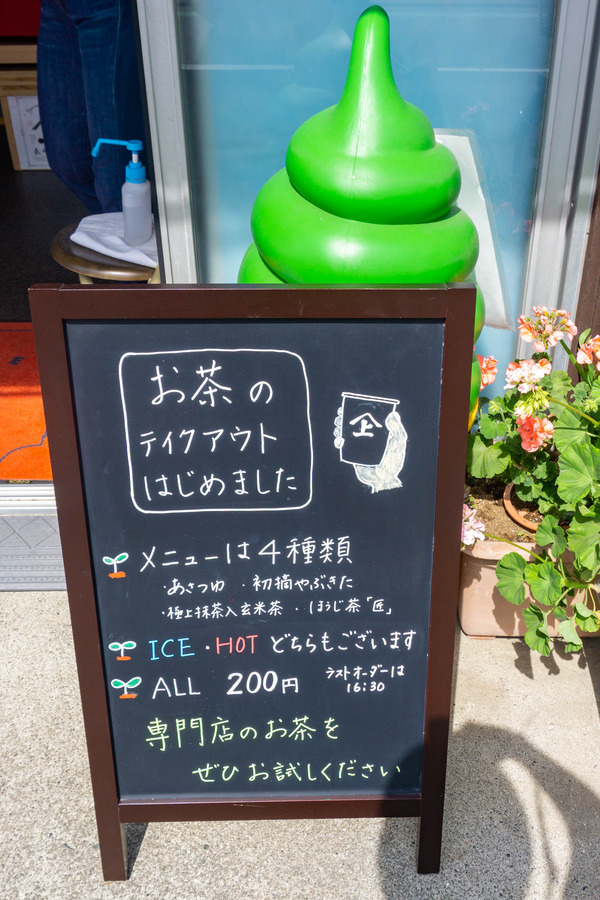 お茶の
テイクアウト
はじめました
上
メニューは4種類
・あさつゆ ・初摘やぶきた
・極上抹茶入玄米茶・ほうじ茶「匠」
ICE・HOT どちらもございます
ALL 200円 ラストオーダーは
16:30
専門店のお茶を
ぜひお試しください